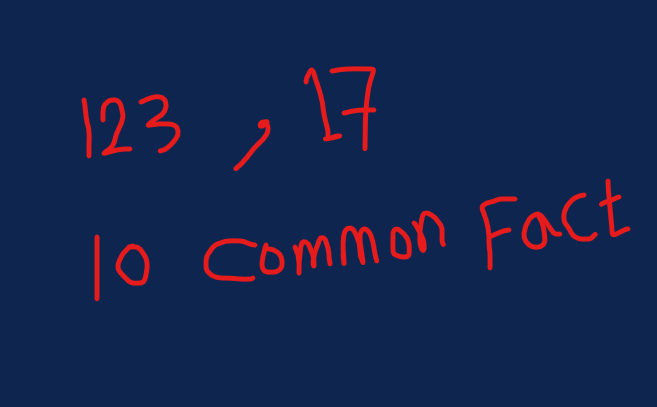 123 , 17
10 Common Fact